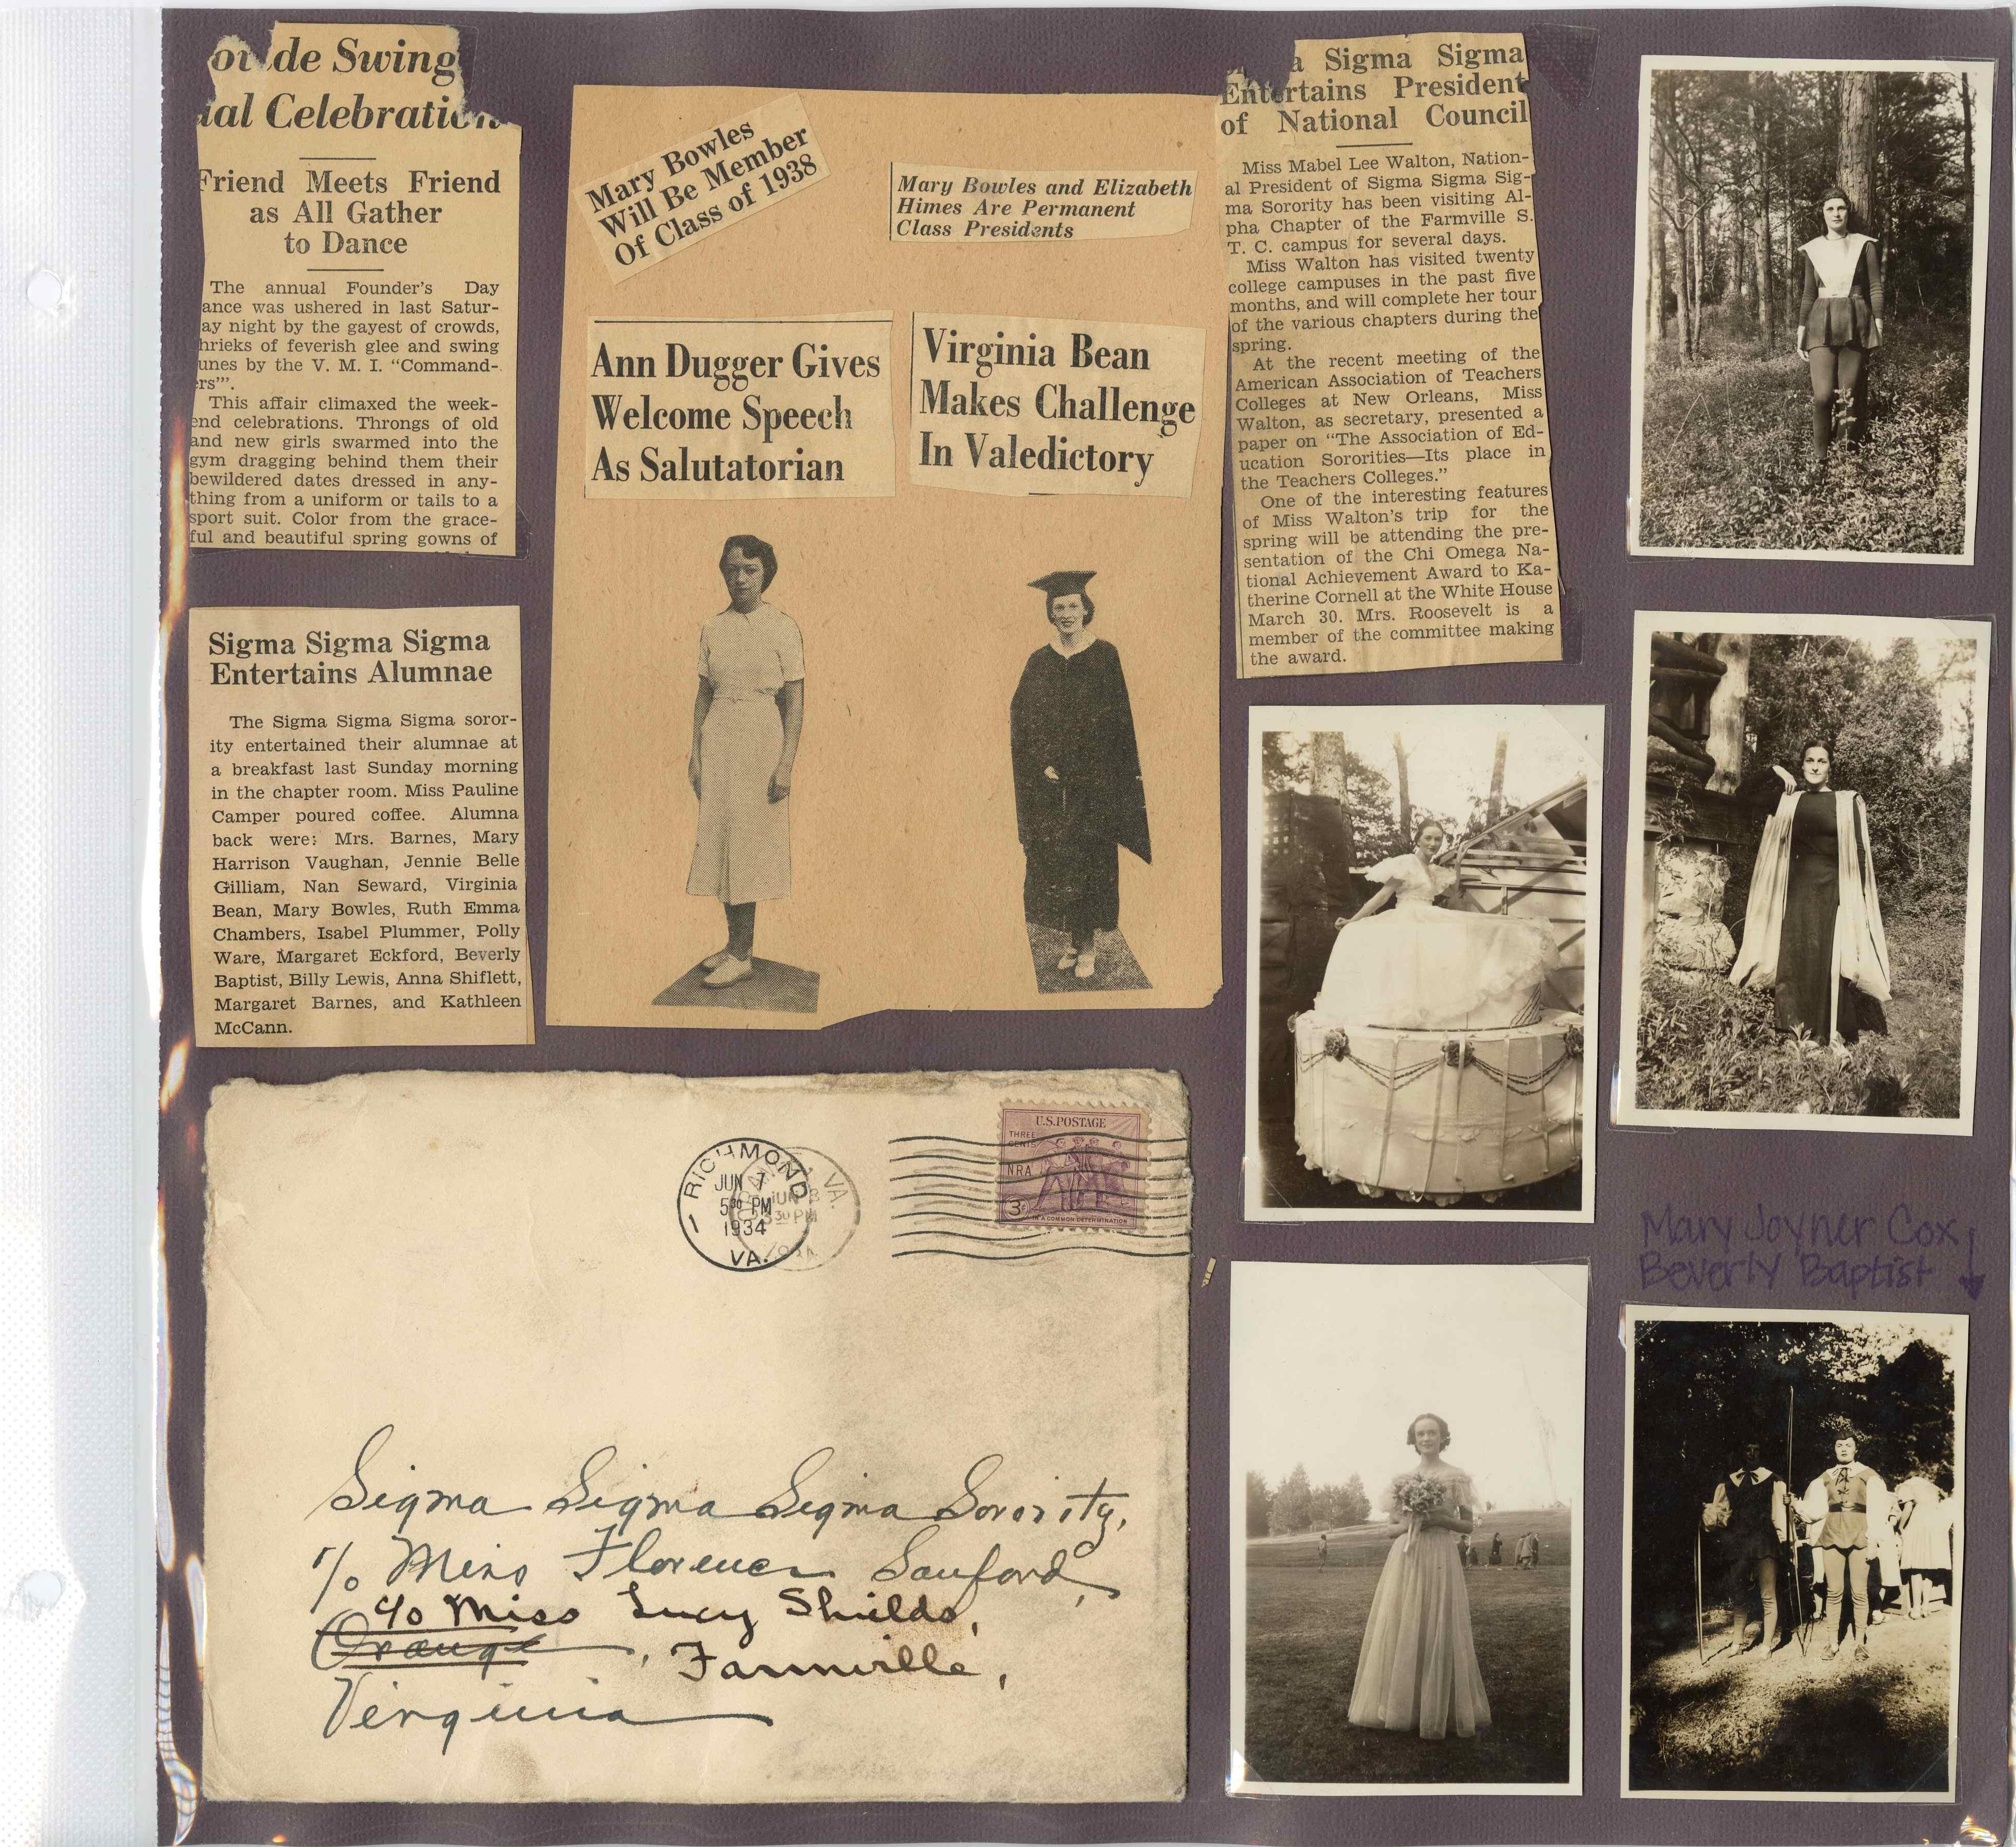 de Swing
Celebration
Friend Meets Friend
as All Gather
to Dance
The annual Founder's Day
ance was ushered in last Satur-
ay night by the gayest of crowds,
hrieks of feverish glee and swing
unes by the V. M. I. "Command-
ers'".
This affair climaxed the week-
end celebrations. Throngs of old
and new girls swarmed into the
gym dragging behind them their
bewildered dates dressed in any-
thing from a uniform or tails to a
sport suit. Color from the grace-
ful and beautiful spring gowns of
Sigma Sigma Sigma
Entertains Alumnae
The Sigma Sigma Sigma soror-
ity entertained their alumnae at
a breakfast last Sunday morning
in the chapter room. Miss Pauline
Camper poured coffee. Alumna
back were: Mrs. Barnes, Mary
Harrison Vaughan, Jennie Belle
Gilliam, Nan Seward, Virginia
Bean, Mary Bowles, Ruth Emma
Chambers, Isabel Plummer, Polly
Ware, Margaret Eckford, Beverly
Baptist, Billy Lewis, Anna Shiflett,
Margaret Barnes, and Kathleen
McCann.
Mary Bowles
Will Be Member
Of Class of 1938
Mary Bowles and Elizabeth
Himes Are Permanent
Class Presidents
Ann Dugger Gives
Welcome Speech
As Salutatorian
Virginia Bean
Makes Challenge
In Valedictory
Sigma Sigma
Entertains President
of National Council
Miss Mabel Lee Walton, Nation-
al President of Sigma Sigma Sig-
ma Sorority has been visiting Al-
pha Chapter of the Farmville S.
T. C. campus for several days.
Miss Walton has visited twenty
college campuses in the past five
months, and will complete her tour
of the various chapters during the
spring.
At the recent meeting of the
American Association of Teachers
Colleges at New Orleans, Miss
Walton, as secretary, presented a
paper on "The Association of Ed-
ucation Sororities—Its place in
the Teachers Colleges."
One of the interesting features
of Miss Walton's trip for the
spring will be attending the pre-
sentation of the Chi Omega Na-
tional Achievement Award to Ka-
therine Cornell at the White House
March 30. Mrs. Roosevelt is a
member of the committee making
the award.
RICHMOND
JUN 7
5 30 PM
1934
VA.
U.S. POSTAGE
THREE
CENTS
NRA
3¢
IN A COMMON DETERMINATION
Sigma Sigma Sigma Sorority,
c/o Miss Florence Sanford,
c/o Miss Lucy Shields,
Orange, Farmville,
Virginia
Mary Joyner Cox
Beverly Baptist